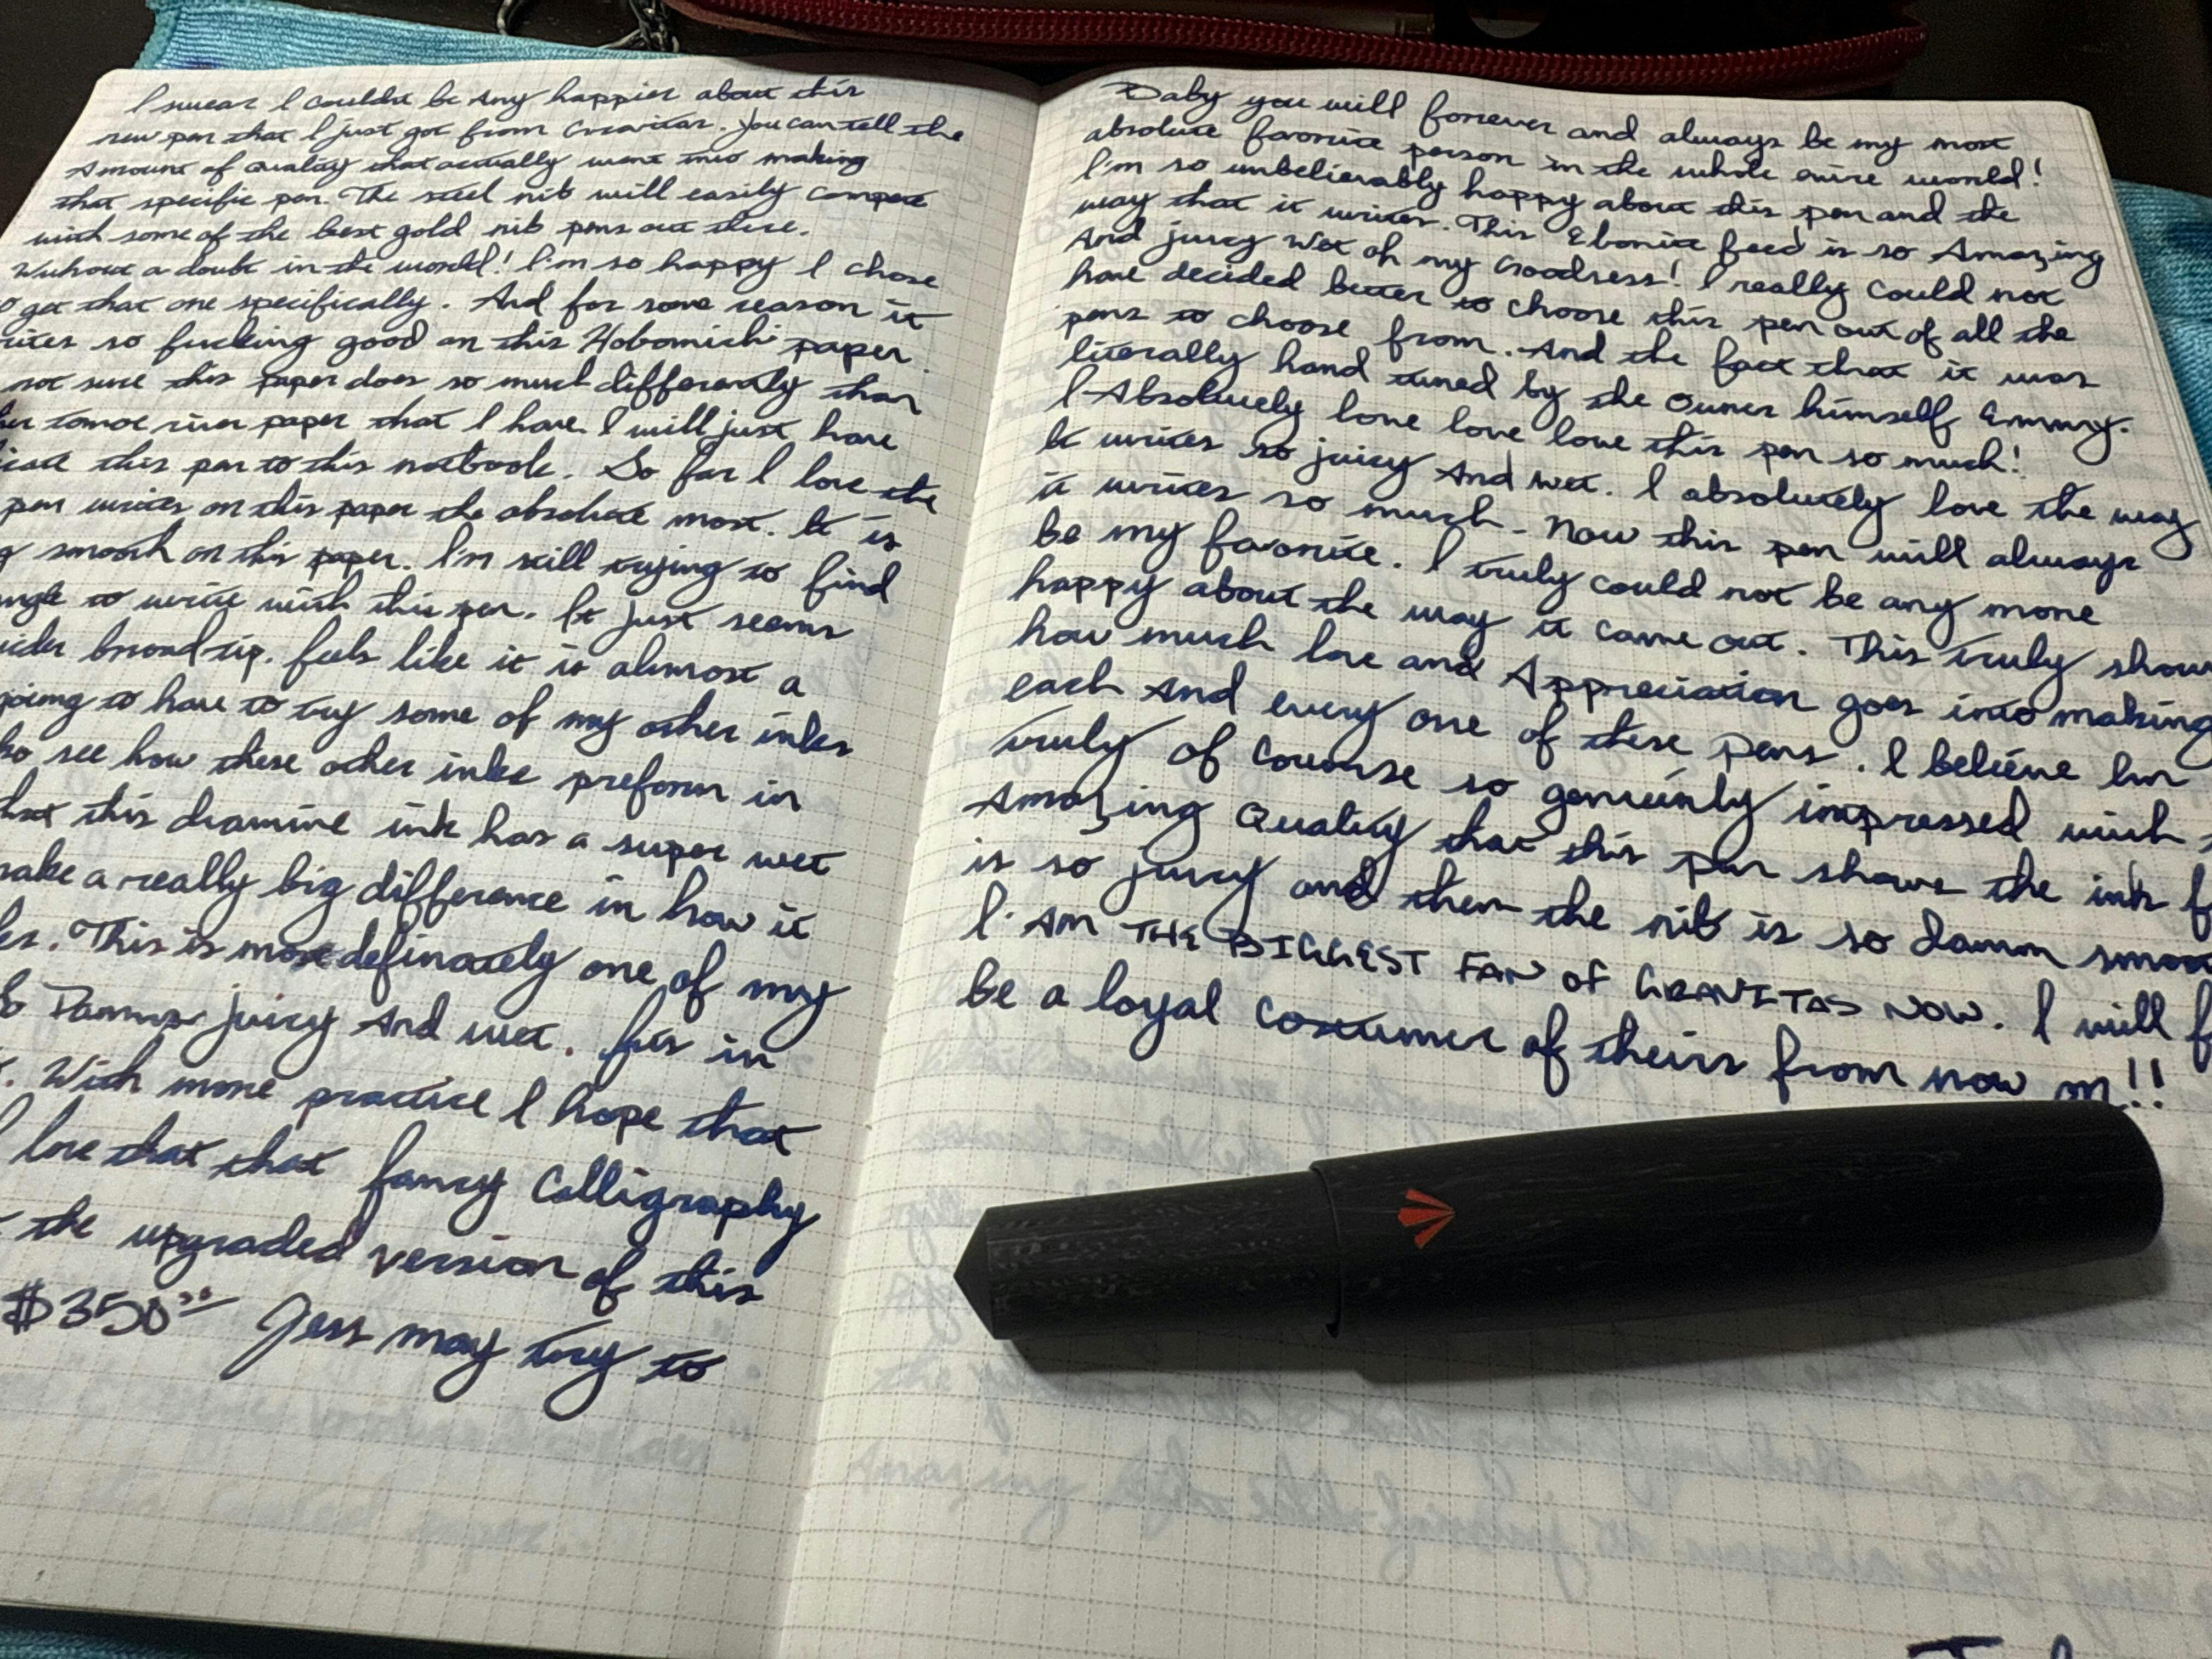 I swear I couldnt be Any happier about this
new pen that I just got from Gravitas. You can tell the
Amount of Quality that actually went into making
that specific pen. The steel nib will easily compete
with some of the best gold nib pens out there.
Without a doubt in the world! I'm so happy I chose
to get that one specifically. And for some reason it
writes so fucking good on this Hobonichi paper.
not sure this paper does so much differently than
tomoe river paper that I have. I will just have
this pen to this notbook. So far I love the
pen writes on this paper the absolute most. It is
smooth on this paper. I'm still trying to find
angle to write with this pen. It just seems
broad tip. feels like it is almost a
going to have to try some of my other inks
to see how these other inks preform in
that this diamine ink has a super wet
make a really big difference in how it
This is most definately one of my
Damn juicy And wet. fits in
With more practice I hope that
I love that that fancy Calligraphy
the upgraded version of this
$350 Jess may try to
Baby you will forever and always be my most
absolute favorite person in the whole entire world!
I'm so unbelievably happy about this pen and the
way that it writes. This Ebonite feed is so Amazing
And juicy Wet oh my Goodness! I really could not
have decided better to choose this pen out of all the
pens to choose from. And the fact that it was
literally hand tuned by the Owner himself Emmy.
I Absolutely love love love this pen so much!
It writes so juicy And wet. I absolutely love the way
it writes so much. Now this pen will always
be my favorite. I truly could not be any more
happy about the way it came out. This truly shows
how much love and Appreciation goes into making
each And every one of these pens. I believe
truly of course so genuinly impressed with
Amazing Quality that this pen shows the ink
is so juicy and then the nib is so damm
I. AM THE BIGGEST FAN OF GRAVITAS NOW. I will
be a loyal costumer of theirs from now on!!